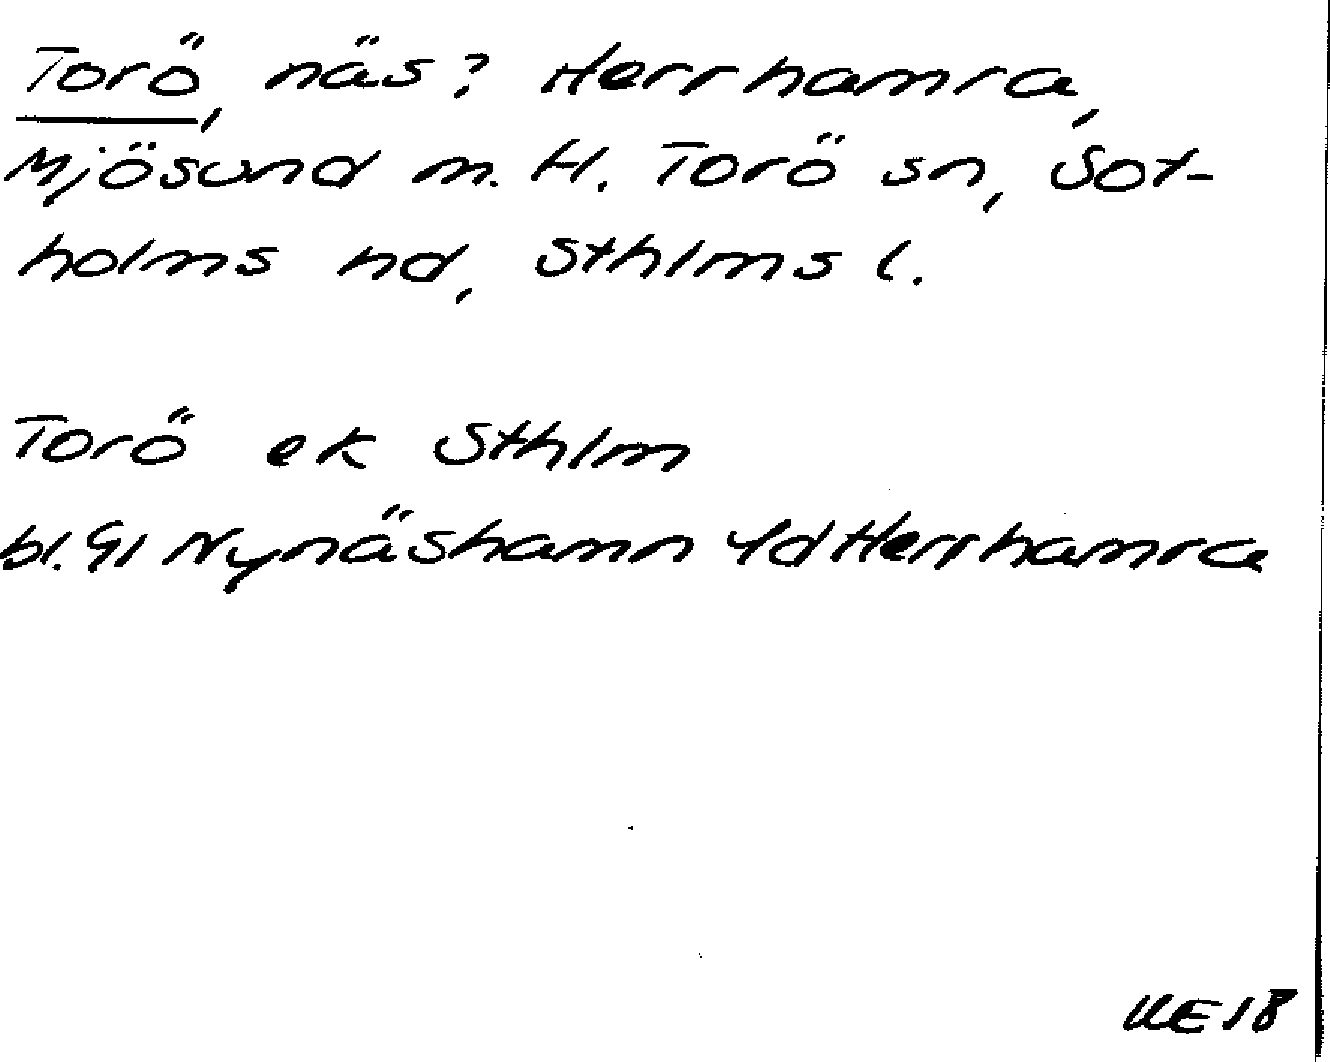 Torö, näs? Herrhamra,
Mjösund m. H. Torö sn, Sot-
holms hd, Sthlms l.
Torö ek Sthlm
bl. 91 Nynäshamn Yd Herrhamra
UE 18